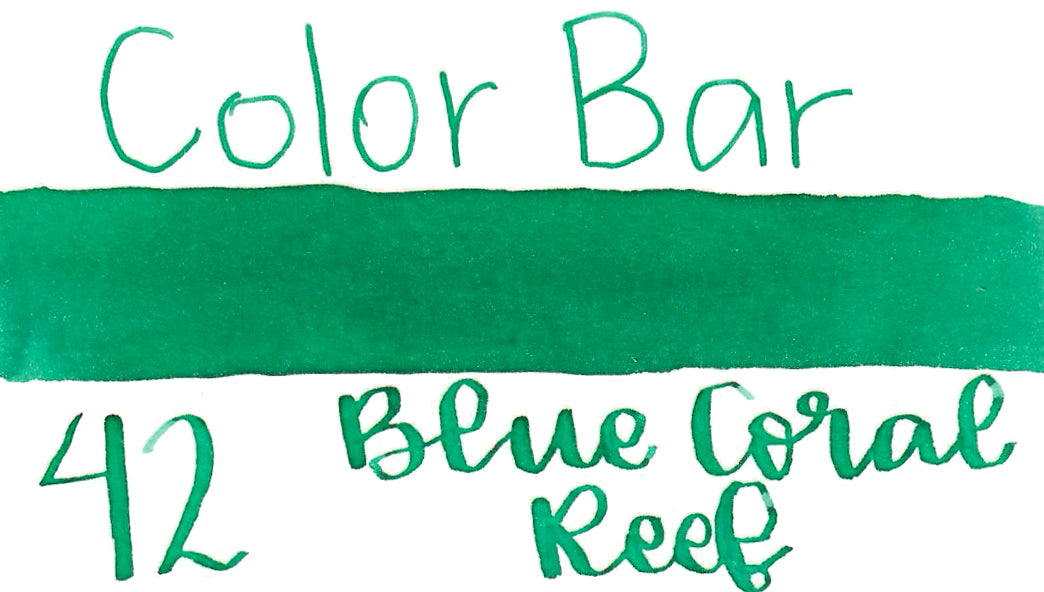 Color Bar
42 Blue Coral
Reef